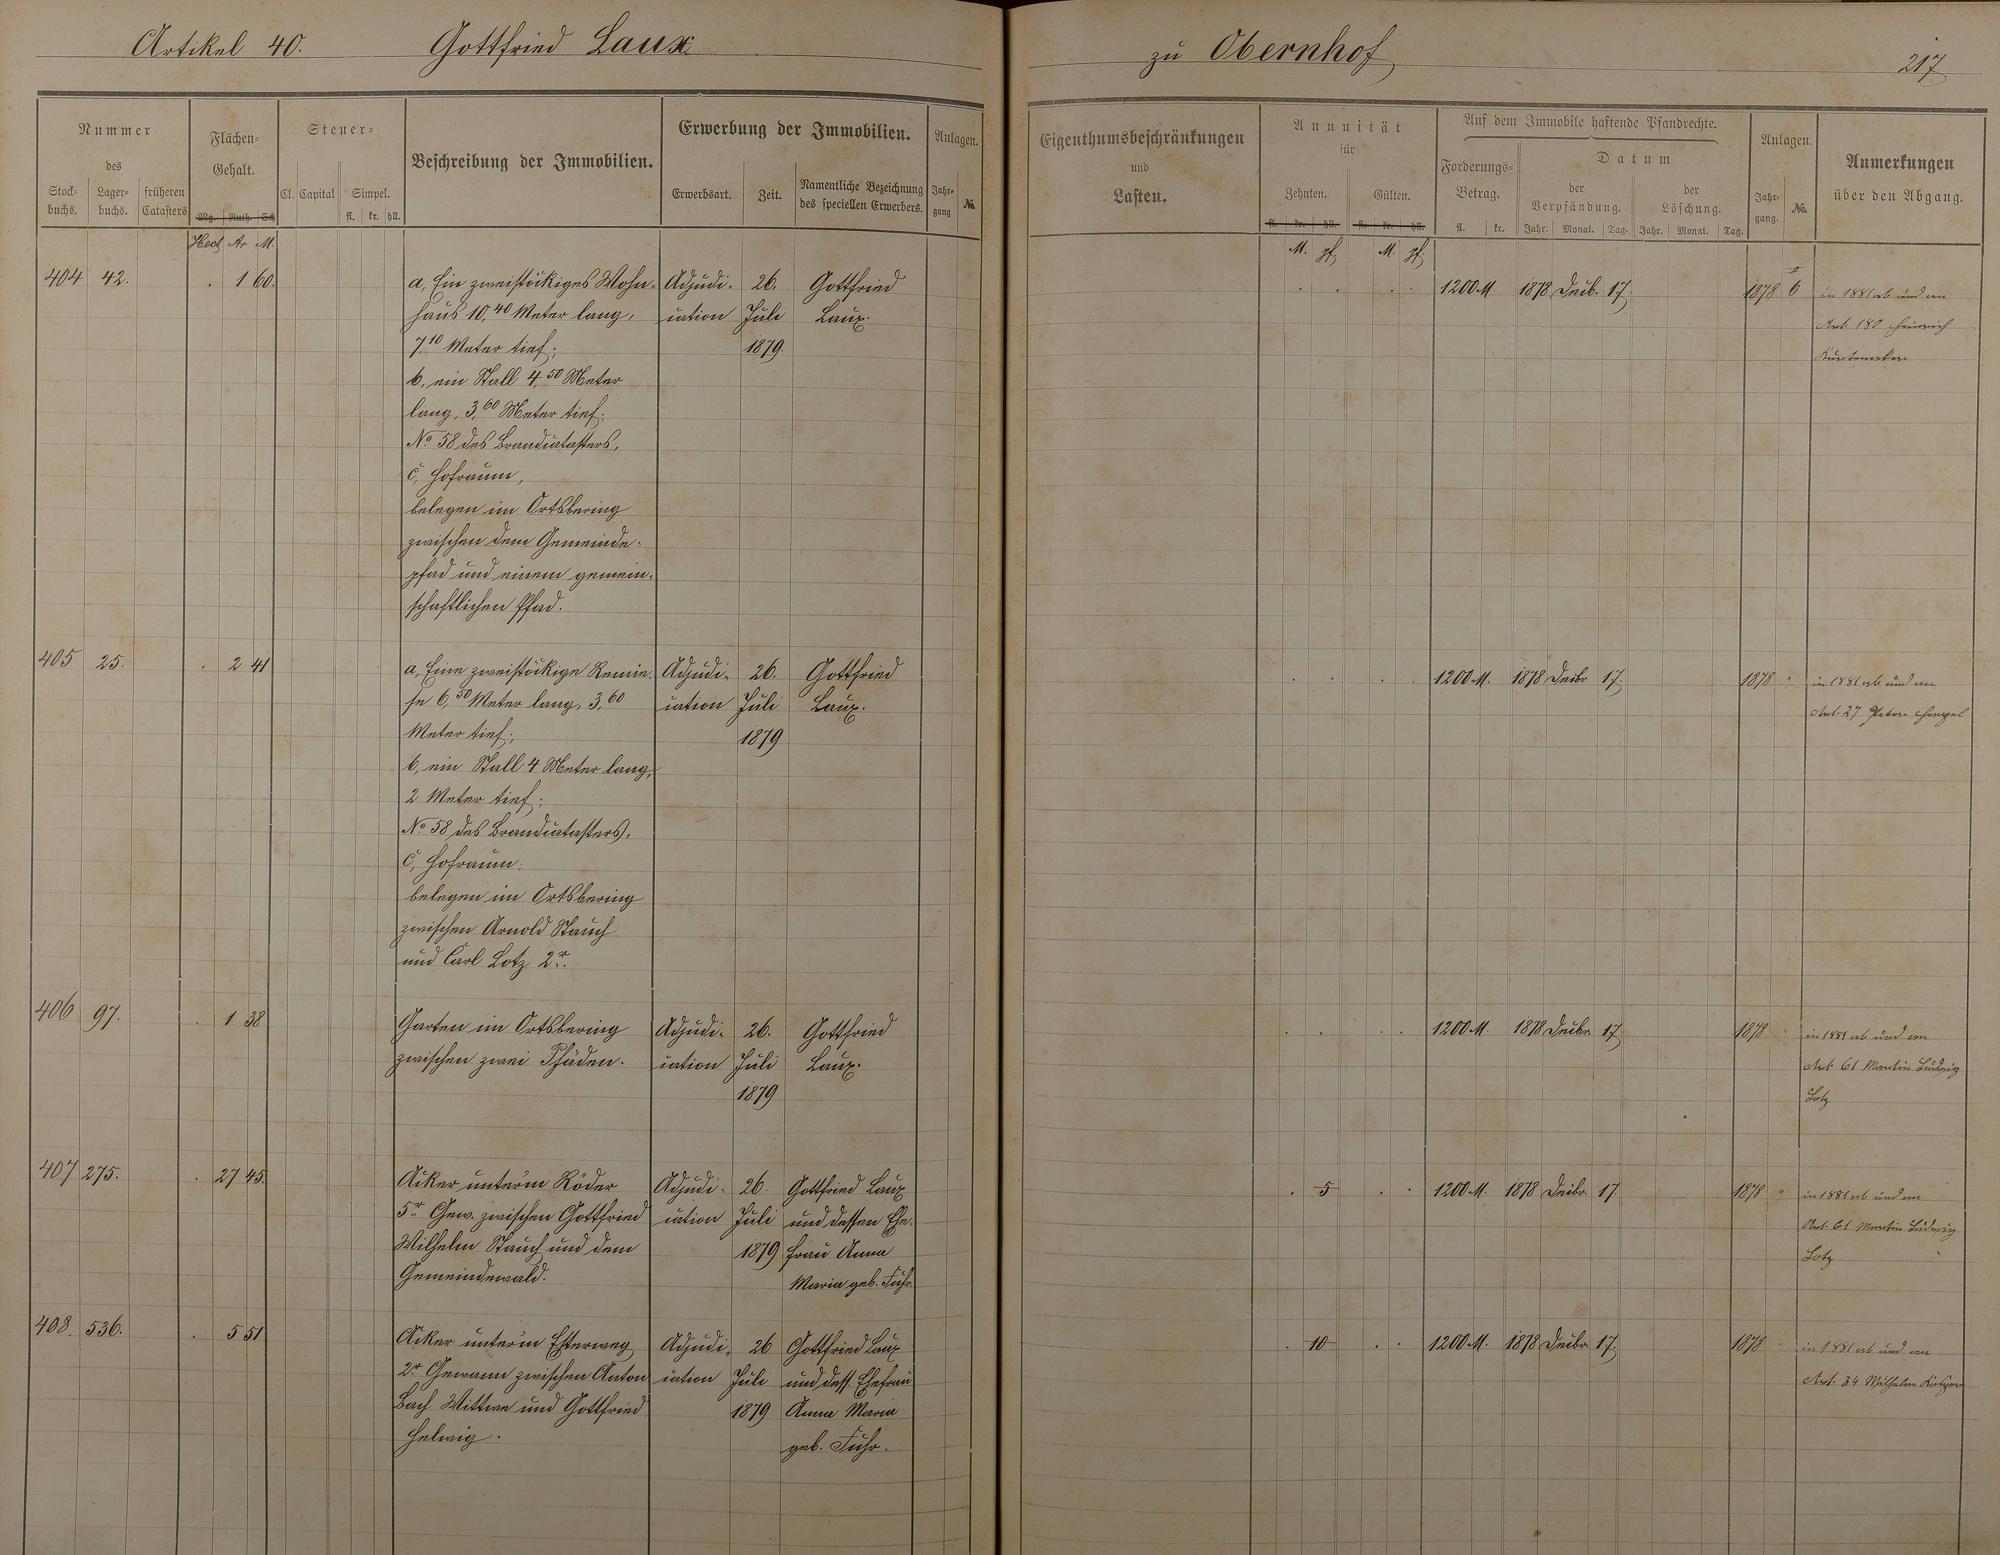 Artikel 40. Gottfried Laux
zu Obernhof 217
Nummer
des
Stock-
buchs.
Lager-
buchs.
früheren
Catasters
Flächen-
Gehalt.
Mg. Ruth. Sch
Hect. Ar M.
Steuer-
Cl. Capital Simpel.
fl. kr. hll.
Beschreibung der Immobilien.
Erwerbung der Immobilien.
Erwerbsart. Zeit.
Namentliche Bezeichnung
des speciellen Erwerbers.
Anlagen.
Jahr-
gang
No.
Eigenthumsbeschränkungen
und
Lasten.
Annuität
für
Zehnten. Gülten.
fl. kr. hll. fl. kr. hll.
M. pf. M. pf.
Auf dem Immobile haftende Pfandrechte.
Forderungs-
Betrag.
fl. kr.
Datum
der
Verpfändung.
Jahr. Monat. Tag.
der
Löschung.
Jahr. Monat. Tag.
Anlagen.
Jahr-
gang.
No.
Anmerkungen
über den Abgang.
404 42. . 1 60.
a, Ein zweistöckiges Wohn-
haus 10,40 Meter lang,
7,10 Meter tief;
b, ein Stall 4,50 Meter
lang, 3,60 Meter tief;
No 58 des Brandcatasters,
c, Hofraum,
belegen im Ortsbering
zwischen dem Gemeinde-
pfad und einem gemein-
schaftlichen Pfad.
Adjudi-
cation
26.
Juli
1879.
Gottfried
Laux.
1200 M 1878 Decb. 17. 1878 6
in 1881 ab und an
Art. 180 Heinrich
405 25. . 2 41
a, Eine zweistöckige Remie-
se 6,50 Meter lang, 3,60
Meter tief;
b, ein Stall 4 Meter lang,
2 Meter tief;
No 58 des Brandcatasters,
c, Hofraum,
belegen im Ortsbering
zwischen Arnold Stauch
und Carl Lotz 2r.
Adjudi-
cation
26.
Juli
1879
Gottfried
Laux.
1200 M. 1878 Decbr 17. 1878 "
in 1881 ab und an
Art. 27 Peter
406 97. . 1 38
Garten im Ortsbering
zwischen zwei Pfäden.
Adjudi-
cation
26.
Juli
1879
Gottfried
Laux.
1200 M. 1878 Decbr. 17 1878 "
in 1881 ab und an
Art. 61 Martin Ludwig
Lotz
407 275. . 27 45.
Acker unterm Röder
5r Gew. zwischen Gottfried
Wilhelm Stauch und dem
Gemeindewald.
Adjudi-
cation
26.
Juli
1879
Gottfried Laux
und dessen Ehe-
frau Anna
Maria geb. Fuhr.
. 5 . . 1200 M. 1878 Decbr. 17. 1878 "
in 1881 ab und an
Art. 61 Martin Ludwig
Lotz
408. 536. . 5 51
Acker unterm Esterweg
2r Gewann zwischen Anton
Bach Wittwe und Gottfried
Helwig.
Adjudi-
cation
26
Juli
1879
Gottfried Laux
und dess. Ehefrau
Anna Maria
geb. Fuhr.
. 10 . . 1200 M. 1878 Decbr 17. 1878 "
in 1881 ab und an
Art. 34 Wilhelm